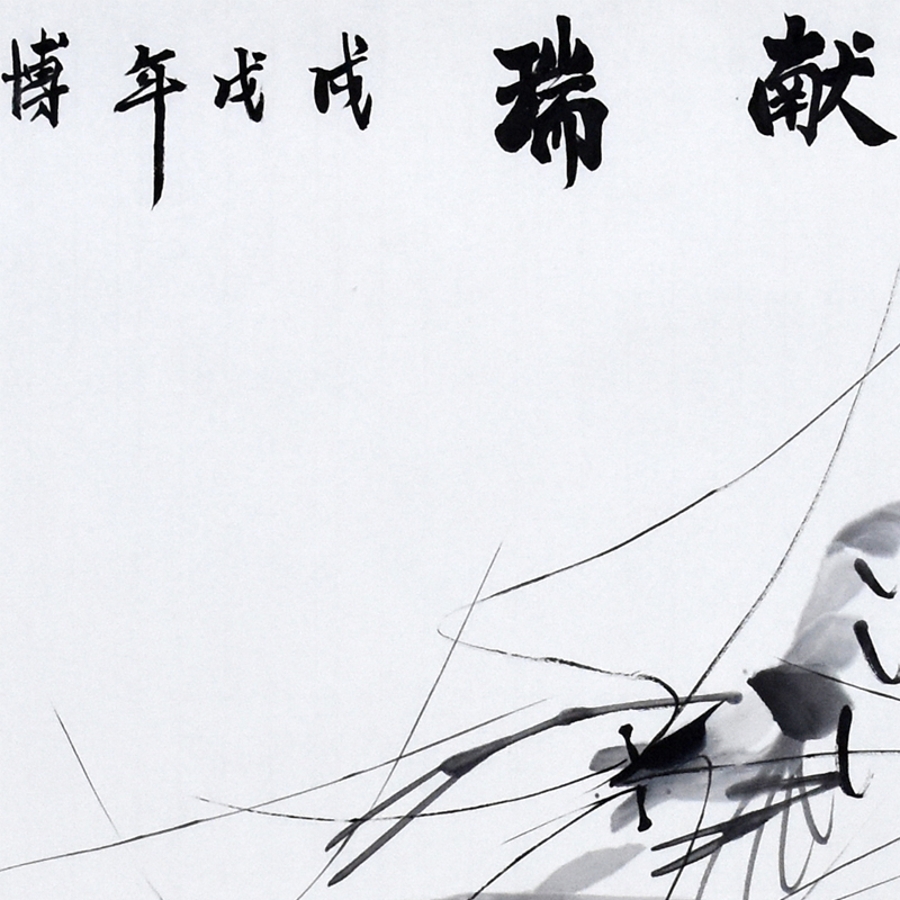 献瑞 戊戌年博